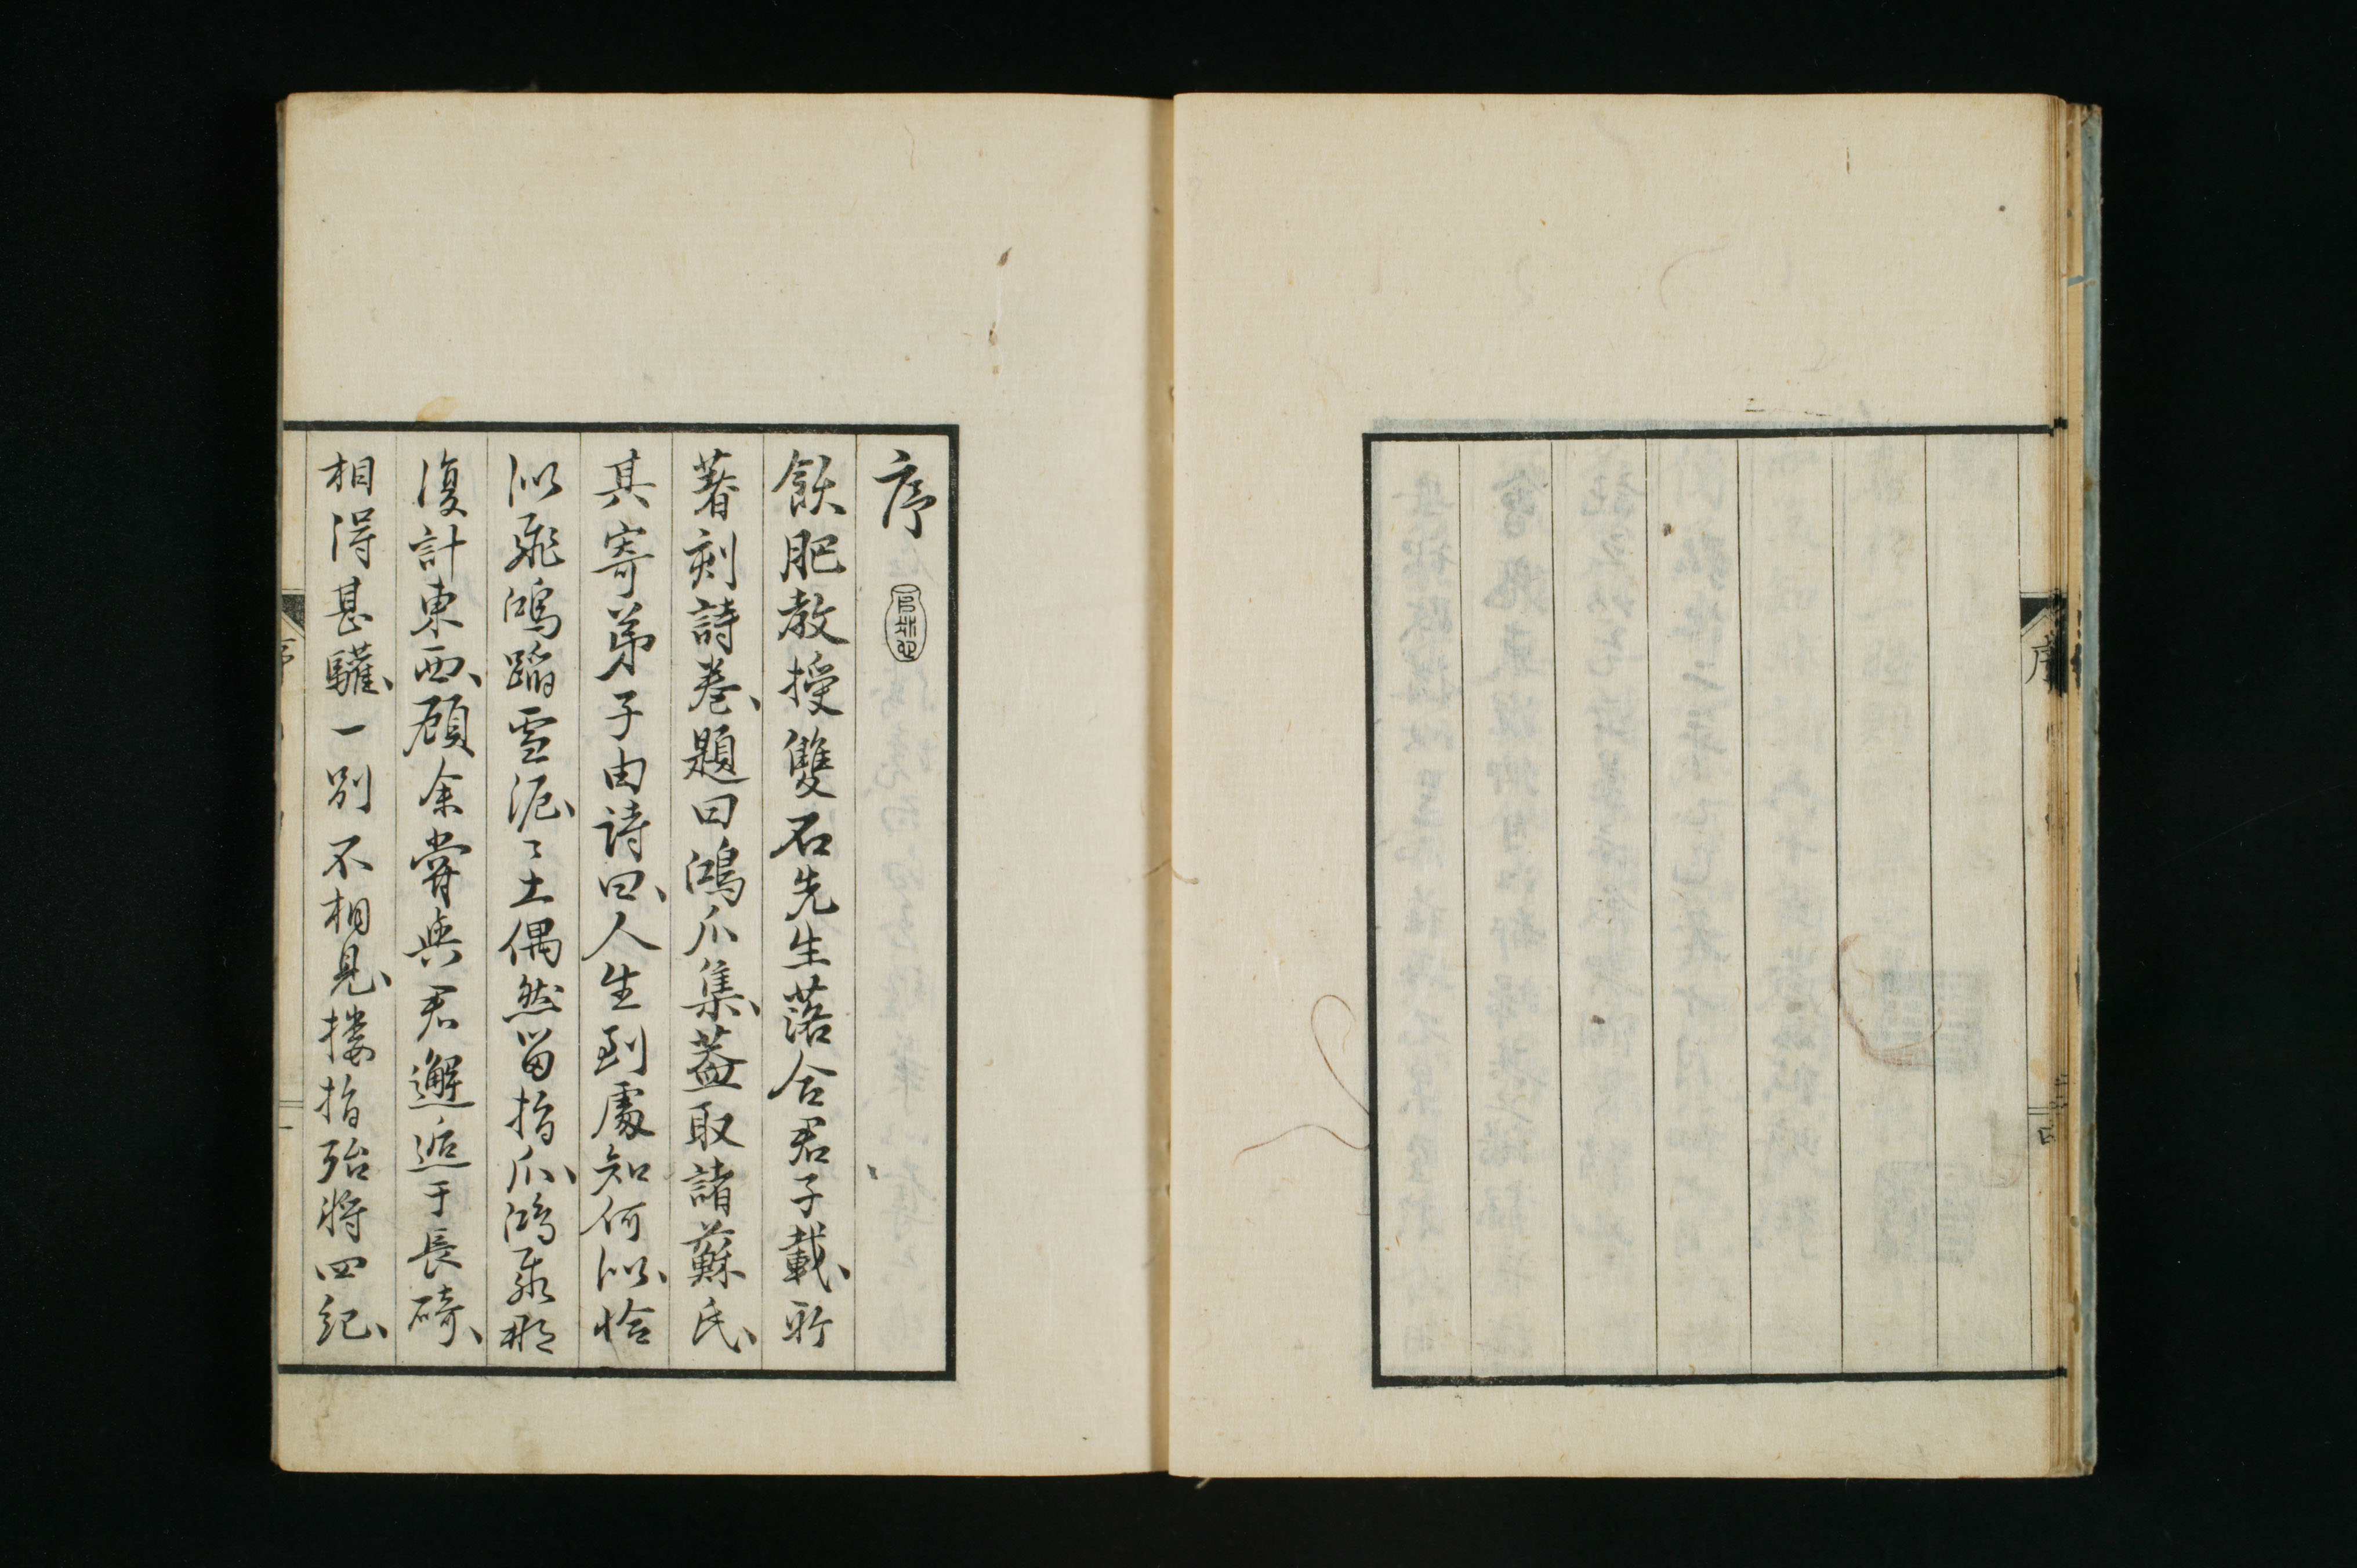 序
序
飫肥教授雙石先生落合君子載、所
著刻詩卷、題曰鴻爪集、蓋取諸蘇氏、
其寄弟子由詩曰、人生到處知何似、恰
似飛鴻蹈雪泥、〻土偶然留指爪、鴻飛那
復計東西、顧余嘗與君邂逅于長碕、
相得甚驩、一別不相見、搂指殆將四紀、